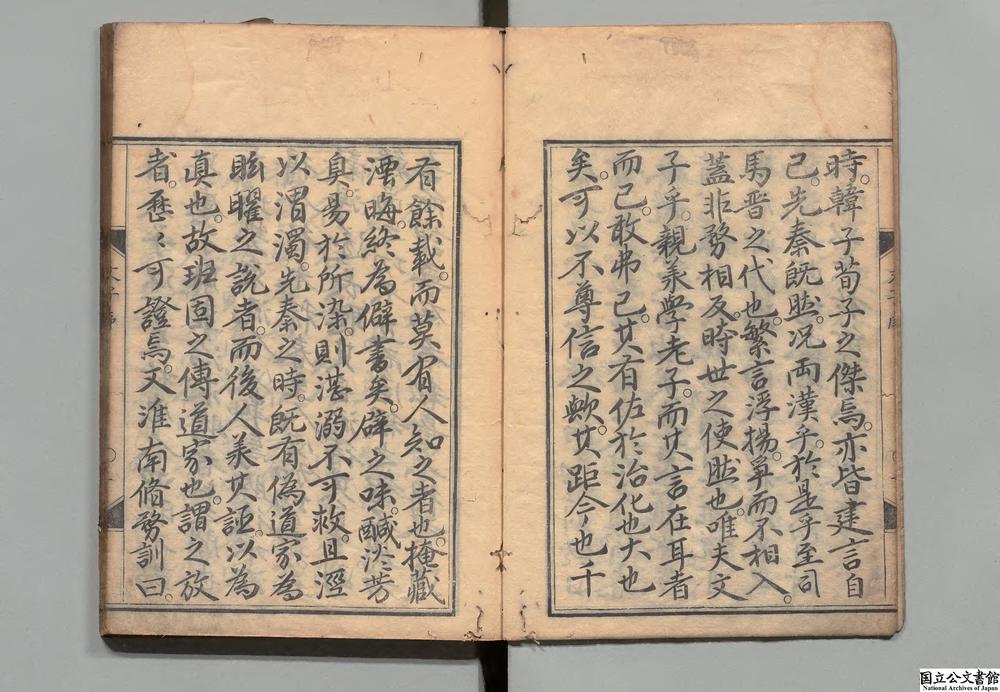 時韓子荀子之傑焉。亦皆建言自
已。先秦既然。况兩漢乎。於是乎至司
馬晋之代也。繁言浮揚。爭而不相入。
蓋非務相反。時世之使然也。唯夫文
子乎。親炙學老子。而其言在耳者
而已。敢弗已。其有佐於治化也大也
矣。可以不尊信之歟。其距今也千
有餘載。而莫有人知之者也。掩藏
湮晦。終為僻書矣。辟之味。鹹淡芳
臭。易於所染。則湛溺不可救。且涇
以渭濁。先秦之時。既有偽道家為
眩曜之說者。而後人羕其誣。以為
真也。故班固之傳道家也。謂之放
者。歷〻可證焉。又淮南脩務訓曰。
国立公文書館
National Archives of Japan